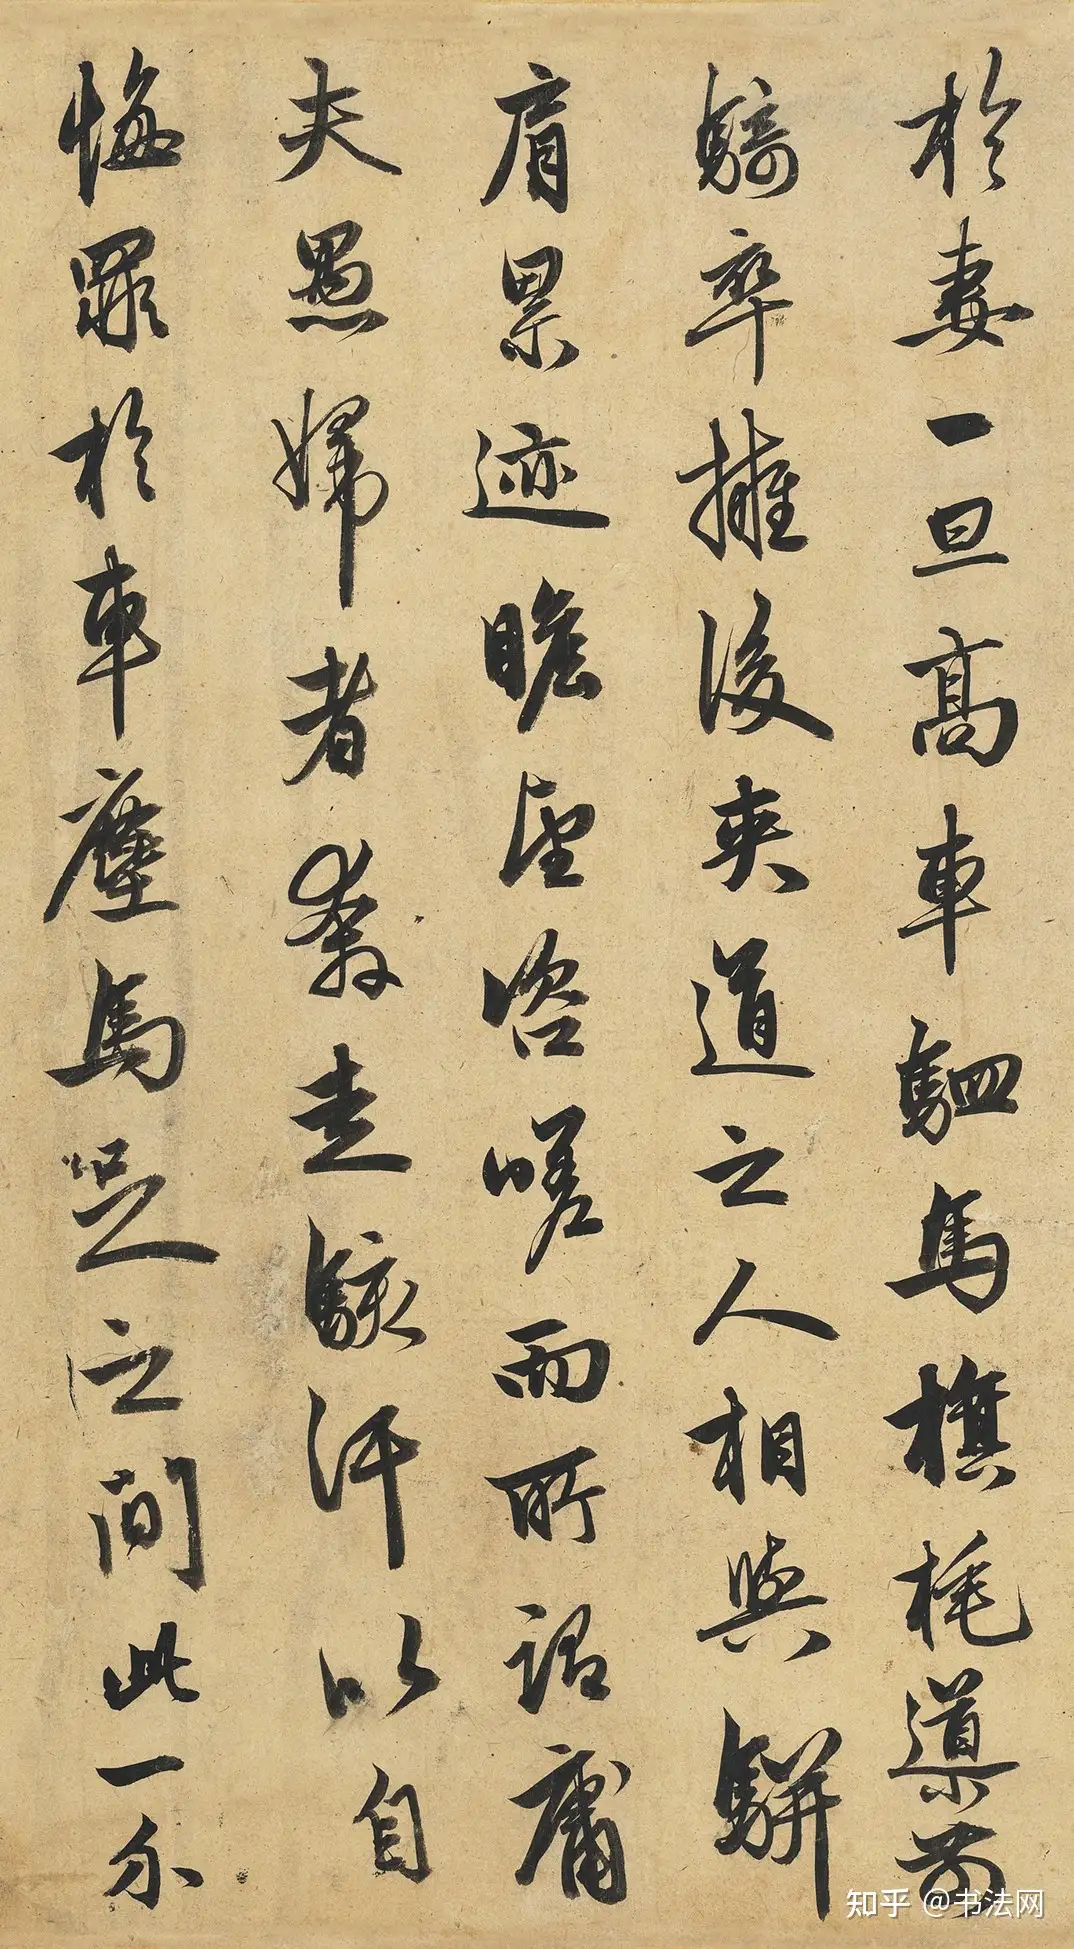 於妻一旦高車駟馬旗旄導前
騎卒擁後夾道之人相與駢
肩累迹瞻望咨嗟而所謂庸
夫愚婦者奔走駭汗以自
悔罪於車塵馬足之間此一介
知乎 @书法网